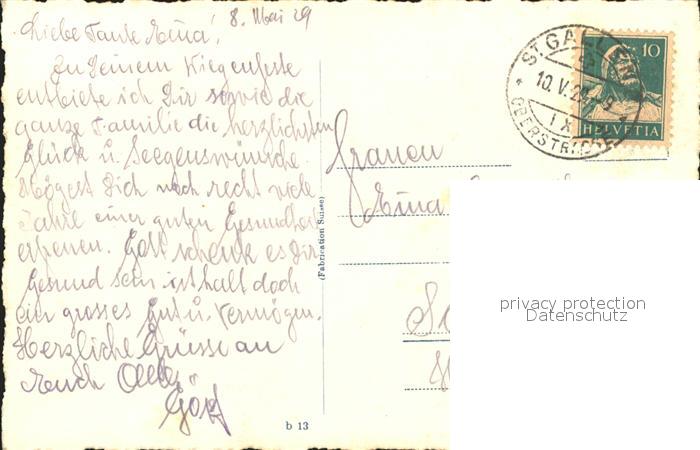 8. Mai 29
Liebe Tante Emma!
Zu Deinem Wiegenfeste
entbiete ich Dir sowie die
ganze Familie die herzlichsten
Glück u. Seegenswünsche
Mögest Dich noch recht viele
Jahre einer guten Gesundheit
erfreuen. Gott schenk es Dir
Gesund sein ist halt doch
ein grosses Gut u. Vermögen.
Herzliche Grüsse an
Euch Alle
b 13
(Fabrication Suisse)
ST. GALLEN
10.V.29
IX
OBERSTR
10
HELVETIA
Frauen
Emma
privacy protection
Datenschutz